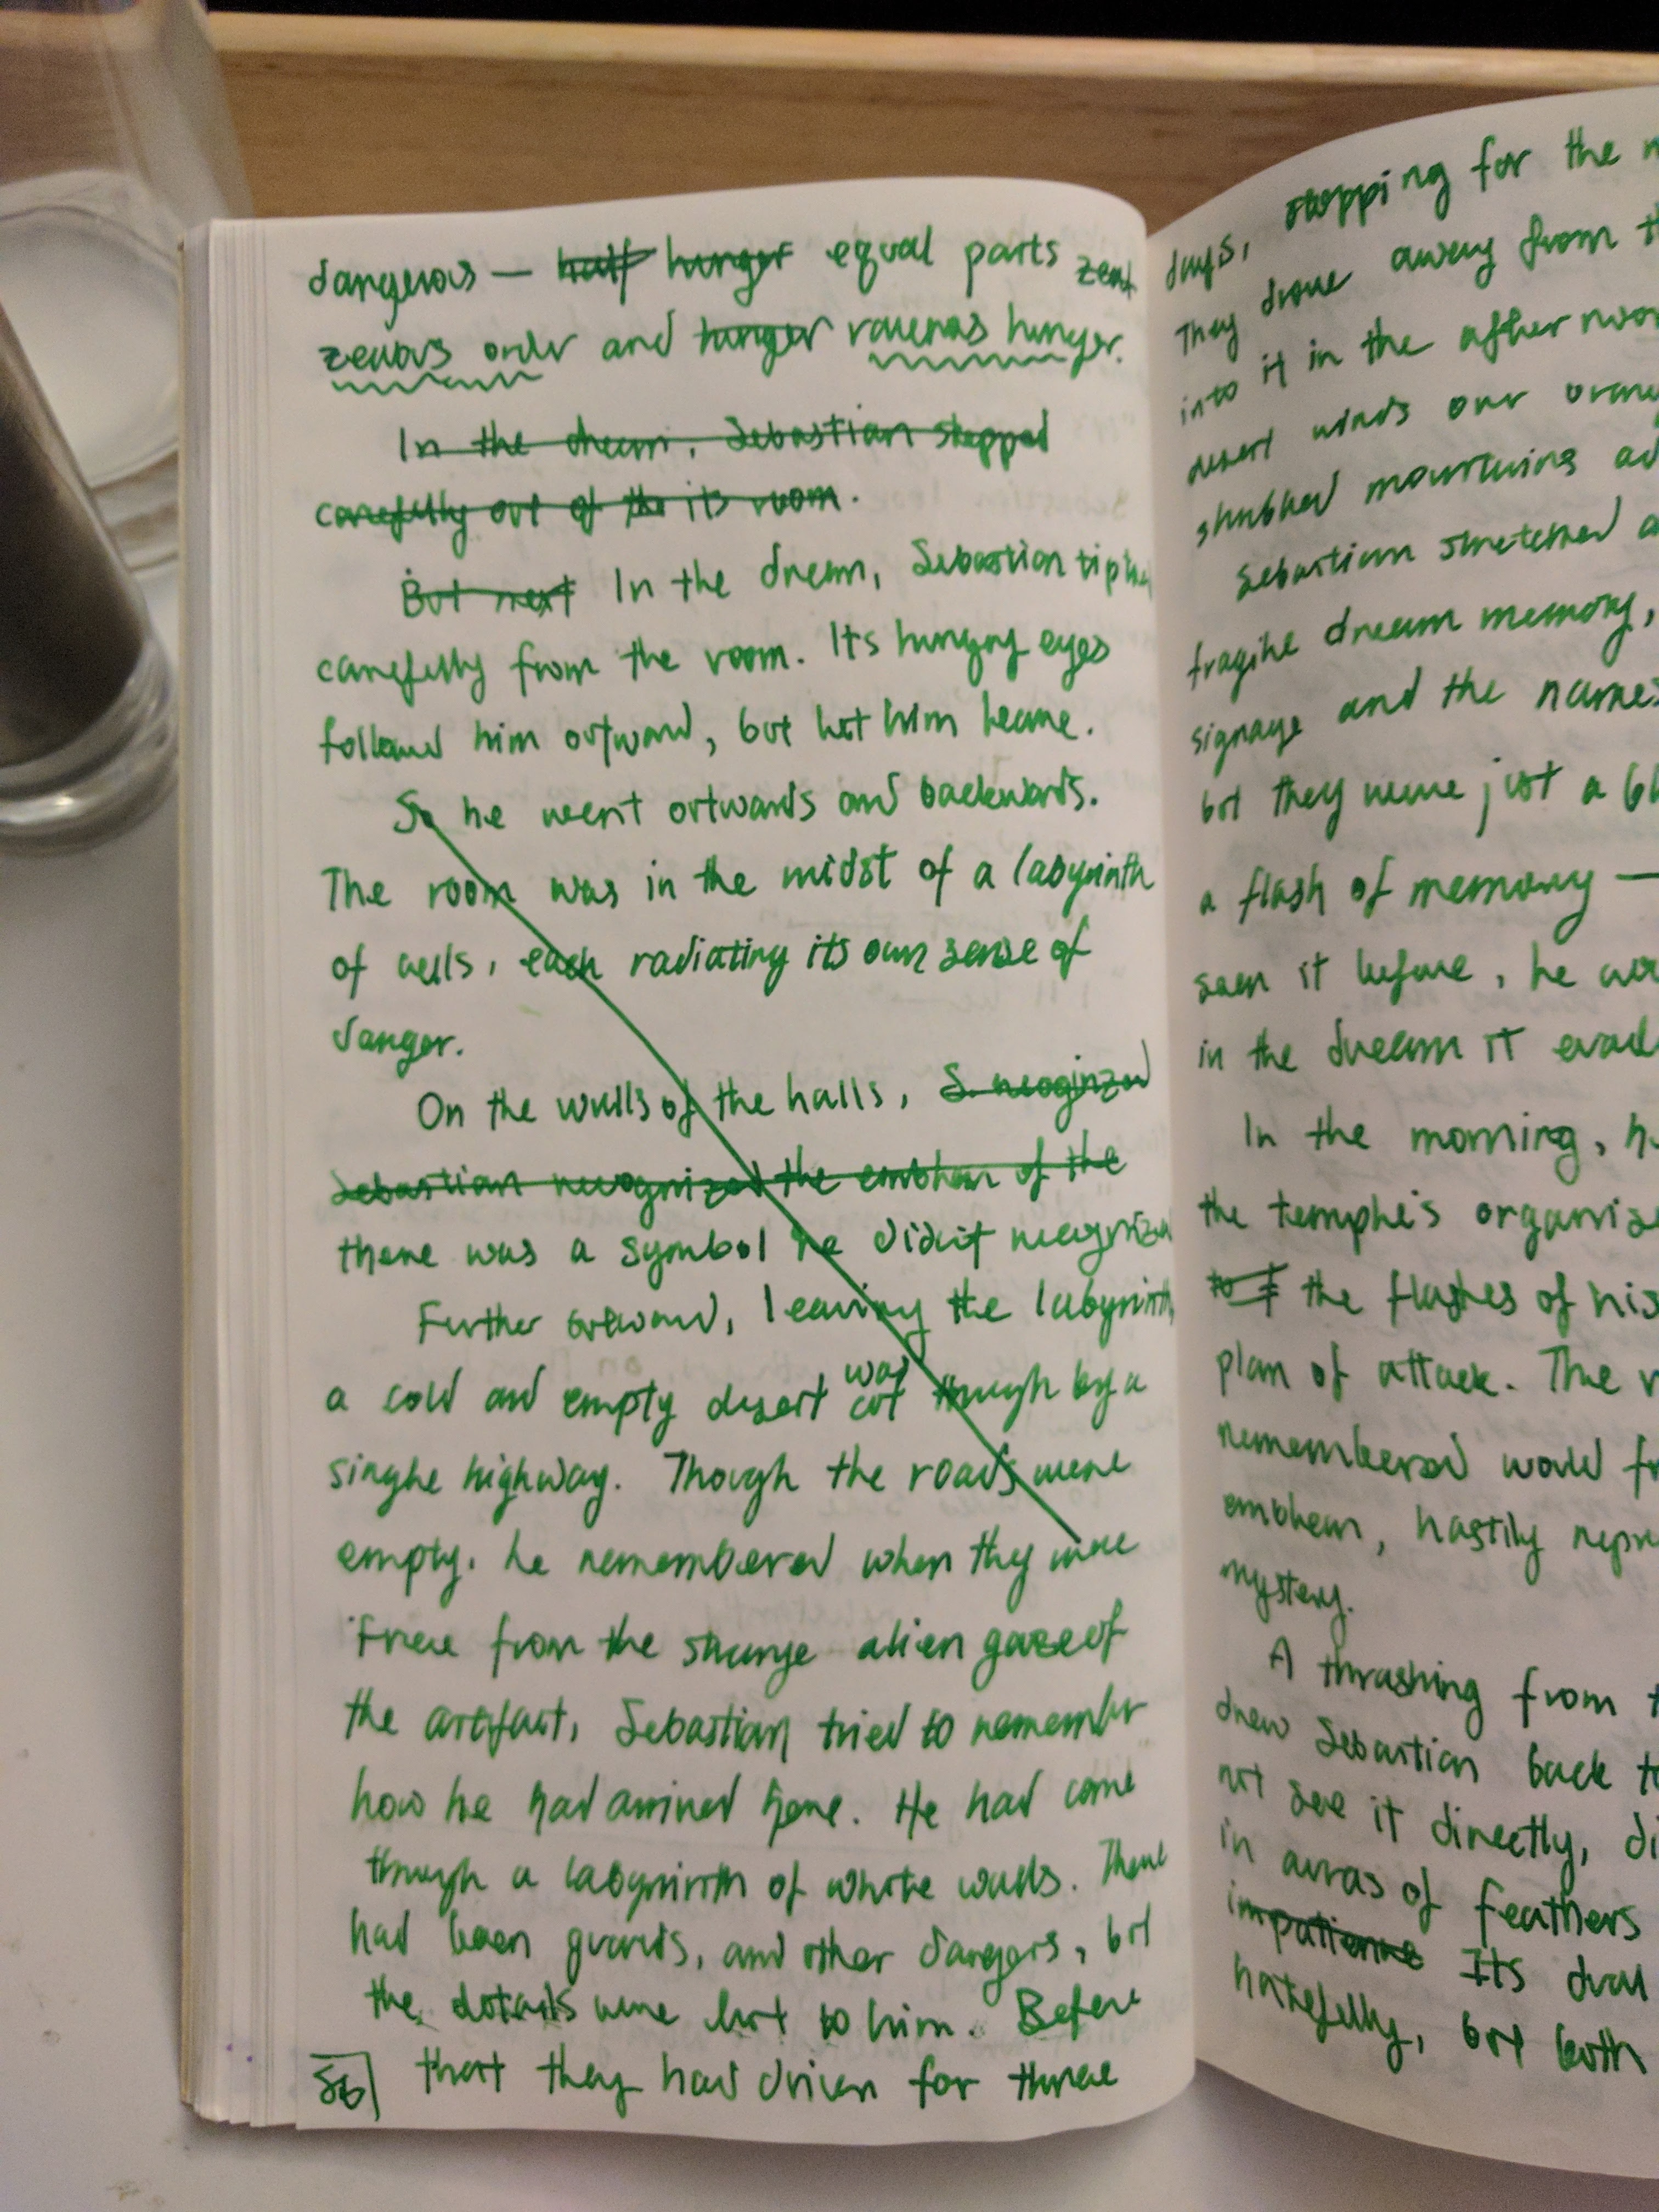 dangerous — half hunger equal parts zeal
zealous order and hunger ravenous hunger.
In the dream, Sebastian stepped
carefully out of the its room.
But next In the dream, Sebastian
carefully from the room. Its hungry eyes
followed him outward, but let him leave.
So he went outwards and backwards.
The room was in the midst of a labyrinth
of cells, each radiating its own sense of
danger.
On the walls of the halls, S. recognized
Sebastian recognized the emblem of the
there was a symbol he didn't recognize
Further outward, leaving the labyrinth,
a cold and empty desert was cut through by a
single highway. Though the roads were
empty, he remembered when they were
Free from the strange alien gaze of
the artifact, Sebastian tried to remember
how he had arrived here. He had come
through a labyrinth of white walls. There
had been guards, and other dangers, but
the details were lost to him. Before
56 that they had driven for three
days, stopping for the
They drove away from
into it in the
desert winds over
shrubbed mountains
Sebastian stretched
fragile dream memory,
signage and the names
but they were just a
a flash of memory —
seen it before, he
in the dream it
In the morning,
the temple's
to the flashes of his
plan of attack. The
remembered would
emblem, hastily
mystery.
A thrashing from
drew Sebastian back
not see it directly,
in auras of feathers
impatience Its dual
hatefully, but both